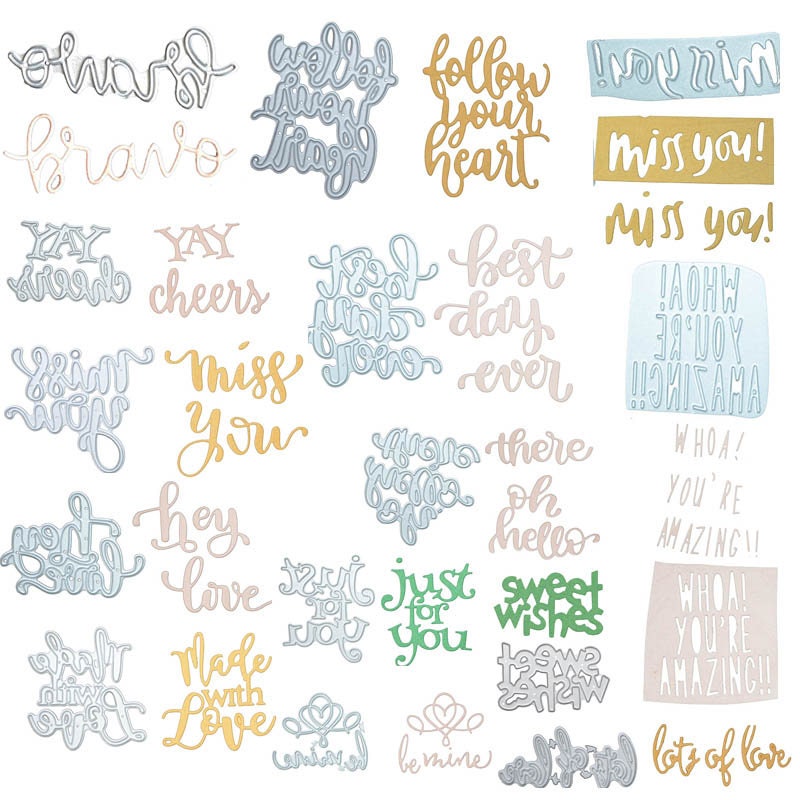 bravo
bravo
follow
your
heart
follow
your
heart
miss you!
miss you!
miss you!
YAY
cheers
YAY
cheers
best
day
ever
best
day
ever
WHOA!
YOU'RE
AMAZING!!
WHOA!
YOU'RE
AMAZING!!
WHOA!
YOU'RE
AMAZING!!
miss
you
miss
you
there
oh
hello
there
oh
hello
hey
love
hey
love
just
for
you
just
for
you
sweet
wishes
sweet
wishes
Made
with
Love
Made
with
Love
be mine
be mine
lots of love
lots of love